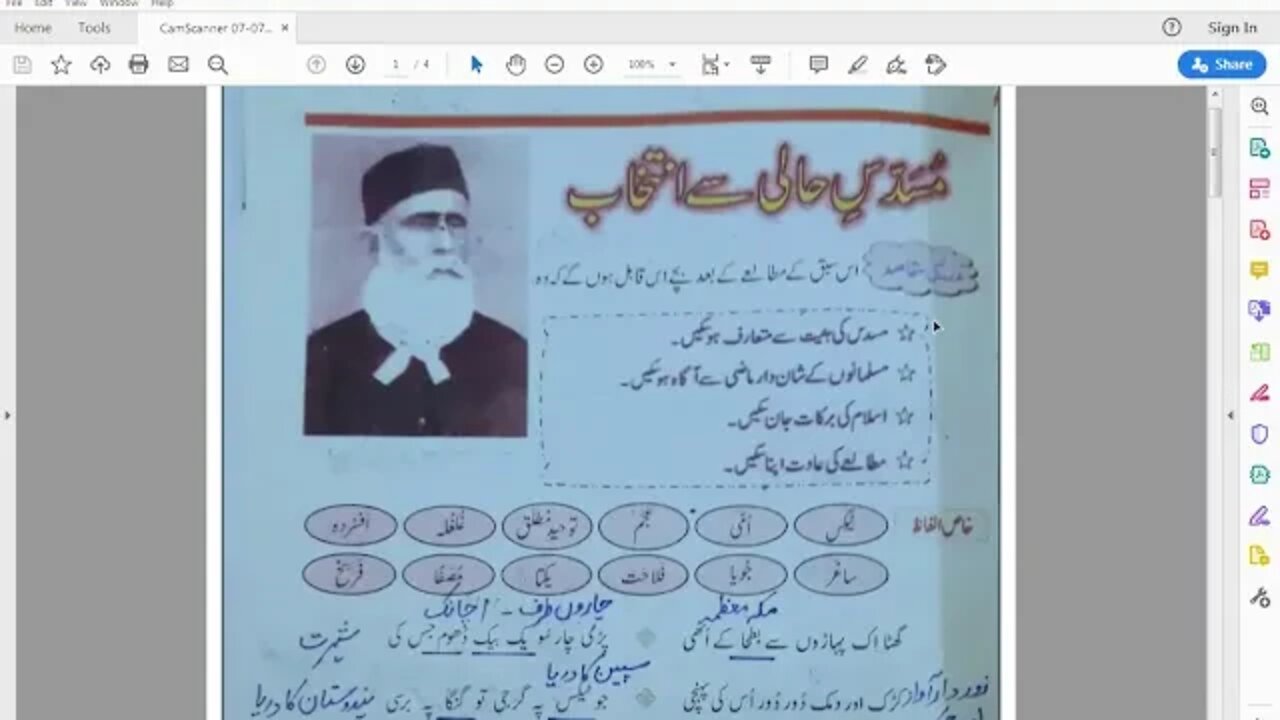 File Edit View Window Help
Home Tools CamScanner 07-07... × Sign In
1 / 4 100% Share
مُسدّسِ حالی سے انتخاب
تدریسی مقاصد اس سبق کے مطالعے کے بعد بچے اس قابل ہوں گے کہ وہ
☆ مسدس کی ہیئت سے متعارف ہو سکیں۔
☆ مسلمانوں کے شان دار ماضی سے آگاہ ہو سکیں۔
☆ اسلام کی برکات جان سکیں۔
☆ مطالعے کی عادت اپنا سکیں۔
خاص الفاظ ٹیکس اُمّی عجم توحیدِ مُطلق غُلغلہ افسُردہ
ساغر جُویا فلاحت یکتا مُصفّا فرسخ
مکہ معظمہ چاروں طرف - اچانک
گھٹا اک پہاڑوں سے بطحا کے اُٹھی پڑی چار سو یک بیک دُھوم جس کی شہرت
سپین کا دریا
زور دار آواز کڑک اور دمک دُور دُور اُس کی پہنچی جو ٹیکس پہ گرجی تو گنگا پہ برسی ہندوستان کا دریا